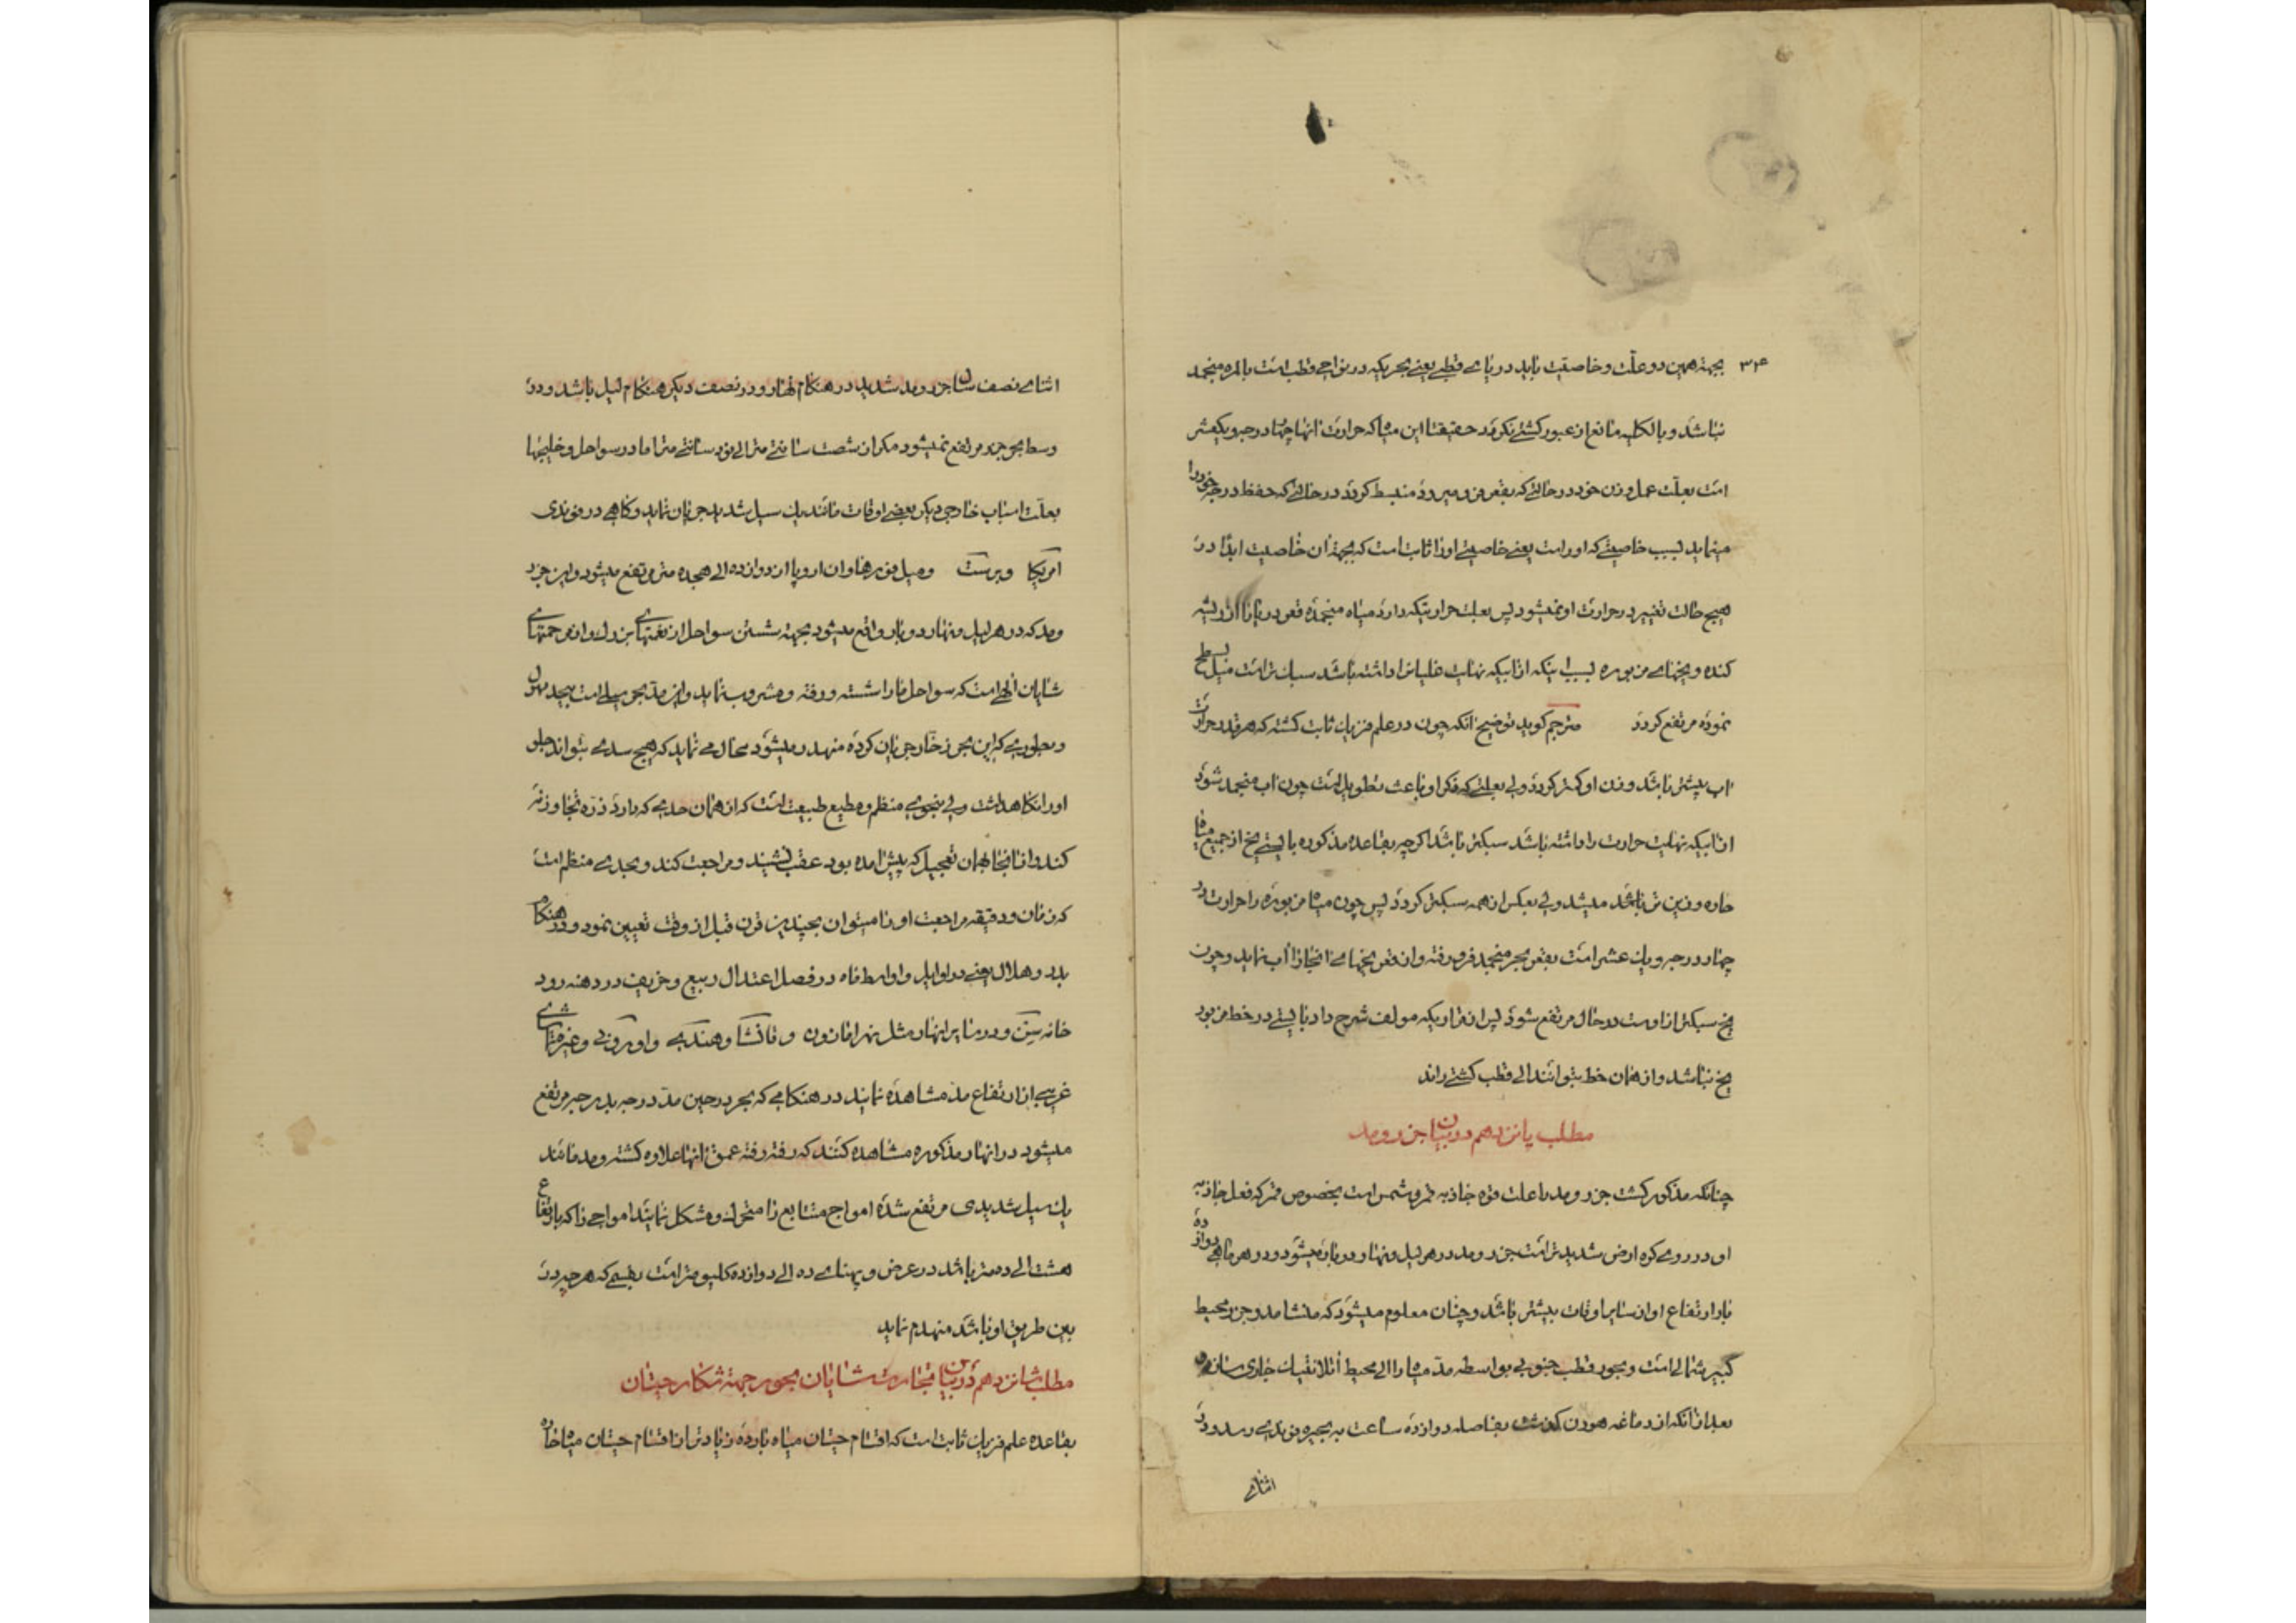 ۳۴ بجهة همین دو علّت و خاصیّت باید دریای قطبی یعنی بحریکه در نواحی قطب است بالمره منجمد
نباشد و بالکلیه مانع از عبور کشتی نکردد حقیقتا این میاه که حرارت انها چهار درجه و یکعشر
است بعلّت عمل وزن خود در حالتی که بقعر فرو میرود منبسط کردد در حالتی که حفظ درجه خود را
مینماید بسبب خاصیتی که او راست یعنی خاصیتی او را ثابت است که بجهة ان خاصیت ابدا در
هیچ حالت تغییر در حرارت او نمیشود پس بعلت حرارتیکه دارد میاه منجمده قعر دریا را از ریشه
کنده و یخهای مزبوره بسبب اینکه از ابیکه نهایت غلیان را داشته باشد سبک تر است میل بسطح
نموده مرتفع کردد مترجم کوید توضیح انکه چون در علم فزیک ثابت کشته که هر قدر حرارت
اب بیشتر باشد وزن او کمتر کردد ولی بعلتی که ذکر او باعث تطویل است چون اب منجمد شود
از ابیکه نهایت حرارت را داشته باشد سبکتر باشد اکرچه بقاعده مذکوره بایستی یخ از جمیع میاه
حاره وزین تر باشد میشد ولی بعکس از همه سبکتر کردد پس چون میاه مزبوره را حرارت در
چهار درجه و یک عشر است بقعر بحر منجمد فرو رفته و از قعر یخهای انجا را اب نماید و چون
یخ سبکتر از اوست در حال مرتفع شود پس از قراریکه مولف شرح داد بایستی در خط مزبور
یخ نباشد و از همان خط بتوانند الی قطب کشتی راند
مطلب پانزدهم در بیان جزر و مد
چنانکه مذکور کشت جزر و مد باعلت قوه جاذبه قمر و شمس است بخصوص قمر که فعل جاذبه
او در روی کره ارض شدیدتر است جزر و مد در هر لیل و نهار دو بار میشود و در هر ماهی دوازده
بار ارتفاع او از سایر اوقات بیشتر باشد و چنان معلوم میشود که منشا مد و جزر محیط
کبیر شمالی است و بحور قطب جنوبی بواسطه مدّ میاه را الی محیط اتلانتیک جاری سازد
بعد از انکه از دماغه هورن کذشت بفاصله دوازده ساعت به بحیره فوندی رسد و در
اثنای
اثنای نصف سال جزر و مد شدید در هنکام نهار و در نصف دیکر هنکام لیل باشد و در
وسط بحر جزر مرتفع نمیشود مکر از شصت سانتی متر الی نود سانتی متر اما در سواحل و خلیجها
بعلّت اسباب خارجی دیکر بعضی اوقات مانند یک سیل شدید جریان نماید و کاهی در فوندی
امریکا و برست و میل فورد هاون اروپا از دوازده الی هجده متر مرتفع میشود و این جزر
و مد که در هر لیل و نهار دو بار واقع میشود بجهة شستن سواحل از نعمتهای بزرک و از مرحمتهای
شایان الهی است که سواحل ما را شسته و رفته و مشروب نماید و این مدّ بحر سیلی است بیحد مهول
و بطوری که این بحر زخار جریان کرده منهدر میشود محال می نماید که هیچ سدی بتواند جلو
او را نکاهداشت ولی بنحوی منظم و مطیع طبیعت است که از همان حدی که دارد ذره تجاوز نه
کند و از انجا بهمان تعجیل که پیش امده بود عقب نشیند و مراجعت کند و بحدی منظم است
که زمان و دقیقه مراجعت او را میتوان بچندین قرن قبل از وقت تعیین نمود و در هنکام
بدر و هلال یعنی در اوایل و اواسط ماه در فصل اعتدال ربیع و خریف در دهنه رود
خانه سن و در سایر انهار مثل نهر امازون و مانشا و هندی و اوری و غیره تماشای
غریبی از ارتفاع مد مشاهده نمایند در هنکامی که بحر در حین مدّ درجه بدرجه مرتفع
میشود در انهار مذکوره مشاهده کنند که رفته رفته عمق انها علاوه کشته و مد مانند
یک سیل شدیدی مرتفع شده امواج متتابع را متحرک و مشکل نمایند امواجی را که بارتفاع
هشت الی ده متر باشد در عرض و پهنای ده الی دوازده کلیومتر است بقسمی که هر چه در
بین طریق او باشد منهدم نماید
مطلب شانزدهم در بیان تجارت شایان بحور جهة شکار حیتان
بقاعده علم فزیک ثابت است که اقسام حیتان میاه بارده زیادتر از اقسام حیتان میاه حاره